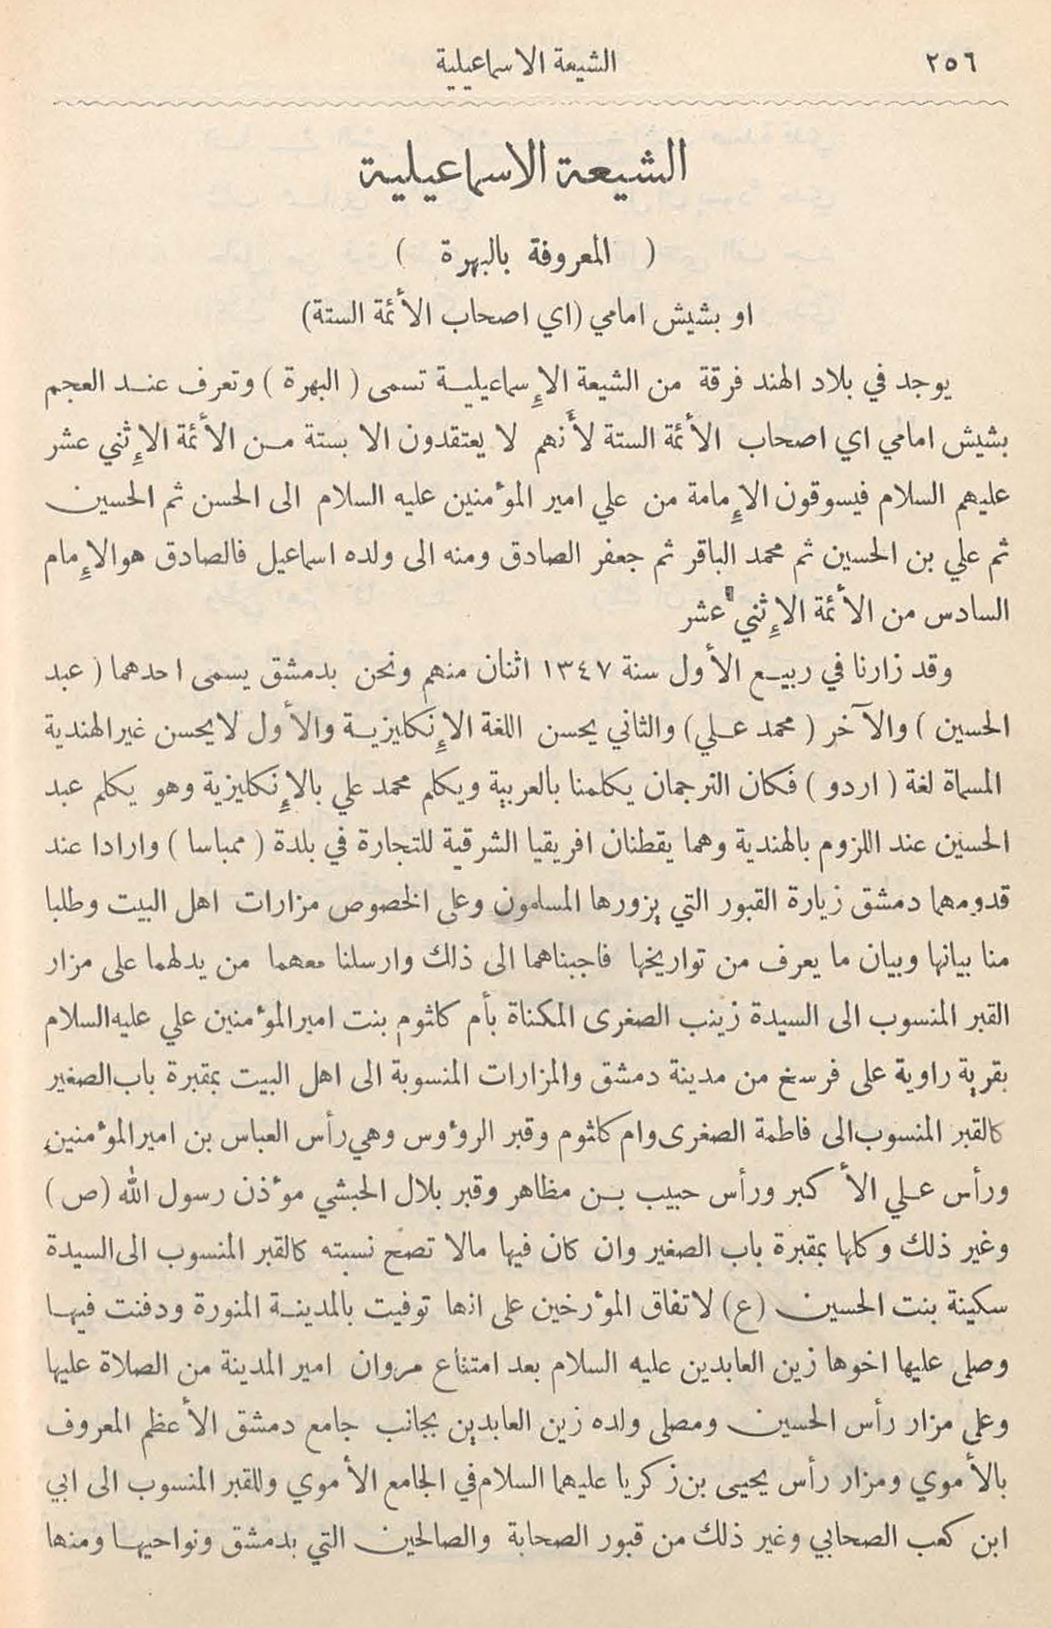 ٢٥٦ الشيعة الاسماعيلية
الشيعة الاسماعيلية
( المعروفة بالبهرة )
او بشيش امامي (اي اصحاب الأئمة الستة)
يوجد في بلاد الهند فرقة من الشيعة الإسماعيلية تسمى ( البهرة ) وتعرف عند العجم
بشيش امامي اي اصحاب الأئمة الستة لأنهم لا يعتقدون الا بستة من الأئمة الإثني عشر
عليهم السلام فيسوقون الإمامة من علي امير المؤمنين عليه السلام الى الحسن ثم الحسين
ثم علي بن الحسين ثم محمد الباقر ثم جعفر الصادق ومنه الى ولده اسماعيل فالصادق هو الإمام
السادس من الأئمة الإثني عشر
وقد زارنا في ربيع الأول سنة ١٣٤٧ اثنان منهم ونحن بدمشق يسمى احدهما ( عبد
الحسين ) والآخر ( محمد علي ) والثاني يحسن اللغة الإنكليزية والأول لا يحسن غير الهندية
المسماة لغة ( اردو ) فكان الترجمان يكلمنا بالعربية ويكلم محمد علي بالإنكليزية وهو يكلم عبد
الحسين عند اللزوم بالهندية وهما يقطنان افريقيا الشرقية للتجارة في بلدة ( ممباسا ) وارادا عند
قدومهما دمشق زيارة القبور التي يزورها المسلمون وعلى الخصوص مزارات اهل البيت وطلبا
منا بيانها وبيان ما يعرف من تواريخها فاجبناهما الى ذلك وارسلنا معهما من يدلهما على مزار
القبر المنسوب الى السيدة زينب الصغرى المكناة بأم كلثوم بنت امير المؤمنين علي عليه السلام
بقرية راوية على فرسخ من مدينة دمشق والمزارات المنسوبة الى اهل البيت بمقبرة باب الصغير
كالقبر المنسوب الى فاطمة الصغرى وام كلثوم وقبر الرؤوس وهي رأس العباس بن امير المؤمنين
ورأس علي الأكبر ورأس حبيب بن مظاهر وقبر بلال الحبشي مؤذن رسول الله (ص)
وغير ذلك وكلها بمقبرة باب الصغير وان كان فيها مالا تصح نسبته كالقبر المنسوب الى السيدة
سكينة بنت الحسين (ع) لاتفاق المؤرخين على انها توفيت بالمدينة المنورة ودفنت فيها
وصلى عليها اخوها زين العابدين عليه السلام بعد امتناع مروان امير المدينة من الصلاة عليها
وعلى مزار رأس الحسين ومصلى ولده زين العابدين بجانب جامع دمشق الأعظم المعروف
بالأموي ومزار رأس يحيى بن زكريا عليهما السلام في الجامع الأموي وللقبر المنسوب الى ابي
ابن كعب الصحابي وغير ذلك من قبور الصحابة والصالحين التي بدمشق ونواحيها ومنها